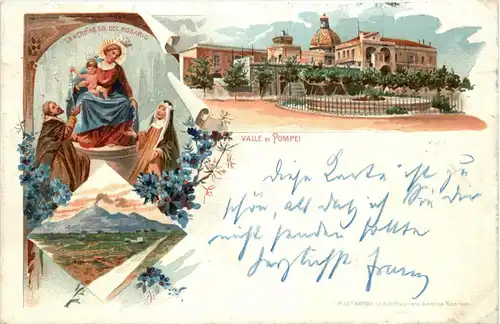 LA VERGINE SS. DEL ROSARIO
VALLE DI POMPEI
Diese Karte ist zu
schön, als daß ich Sie Dir
nicht senden sollte
herzlichst